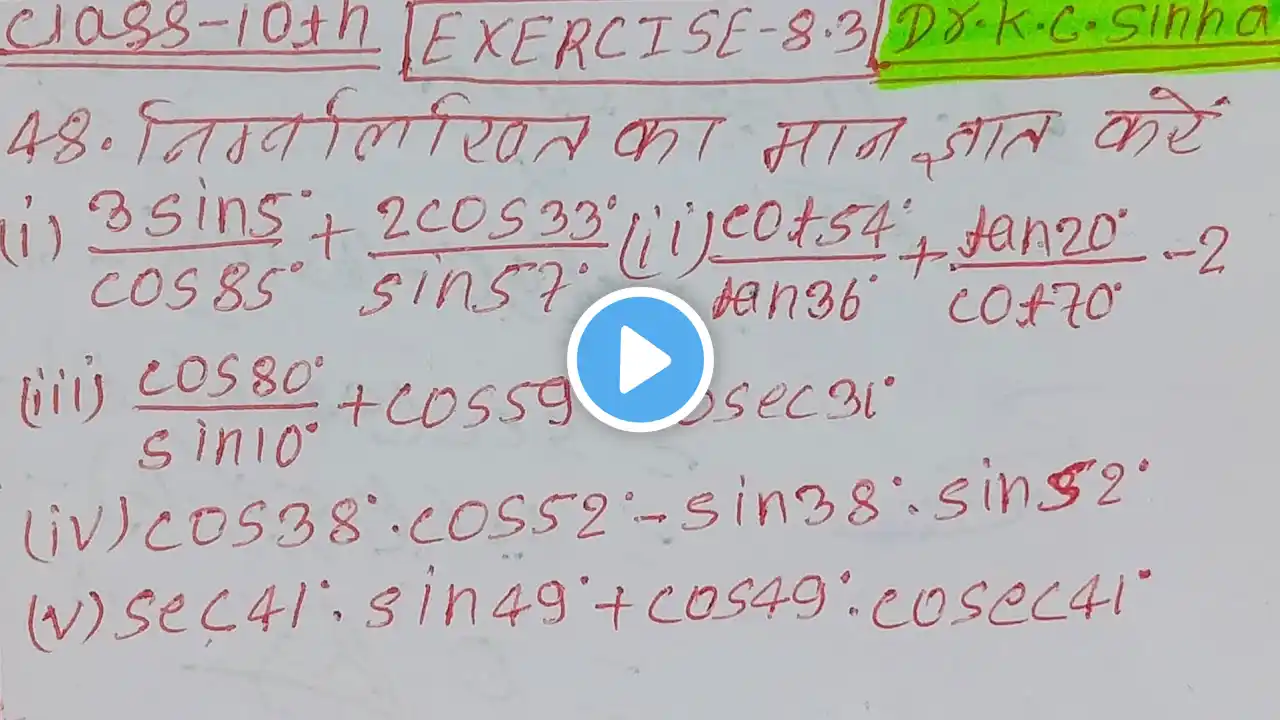 class-10th EXERCISE-8.3 Dr.K.C.Sinha
48. निम्नलिखित का मान ज्ञात करें
(i) 3sin5°/cos85° + 2cos33°/sin57° (ii) cot54°/tan36° + tan20°/cot70° -2
(iii) cos80°/sin10° + cos59 osec31°
(iv) cos38°.cos52° - sin38°.sin52°
(v) sec41°.sin49° + cos49°.cosec41°